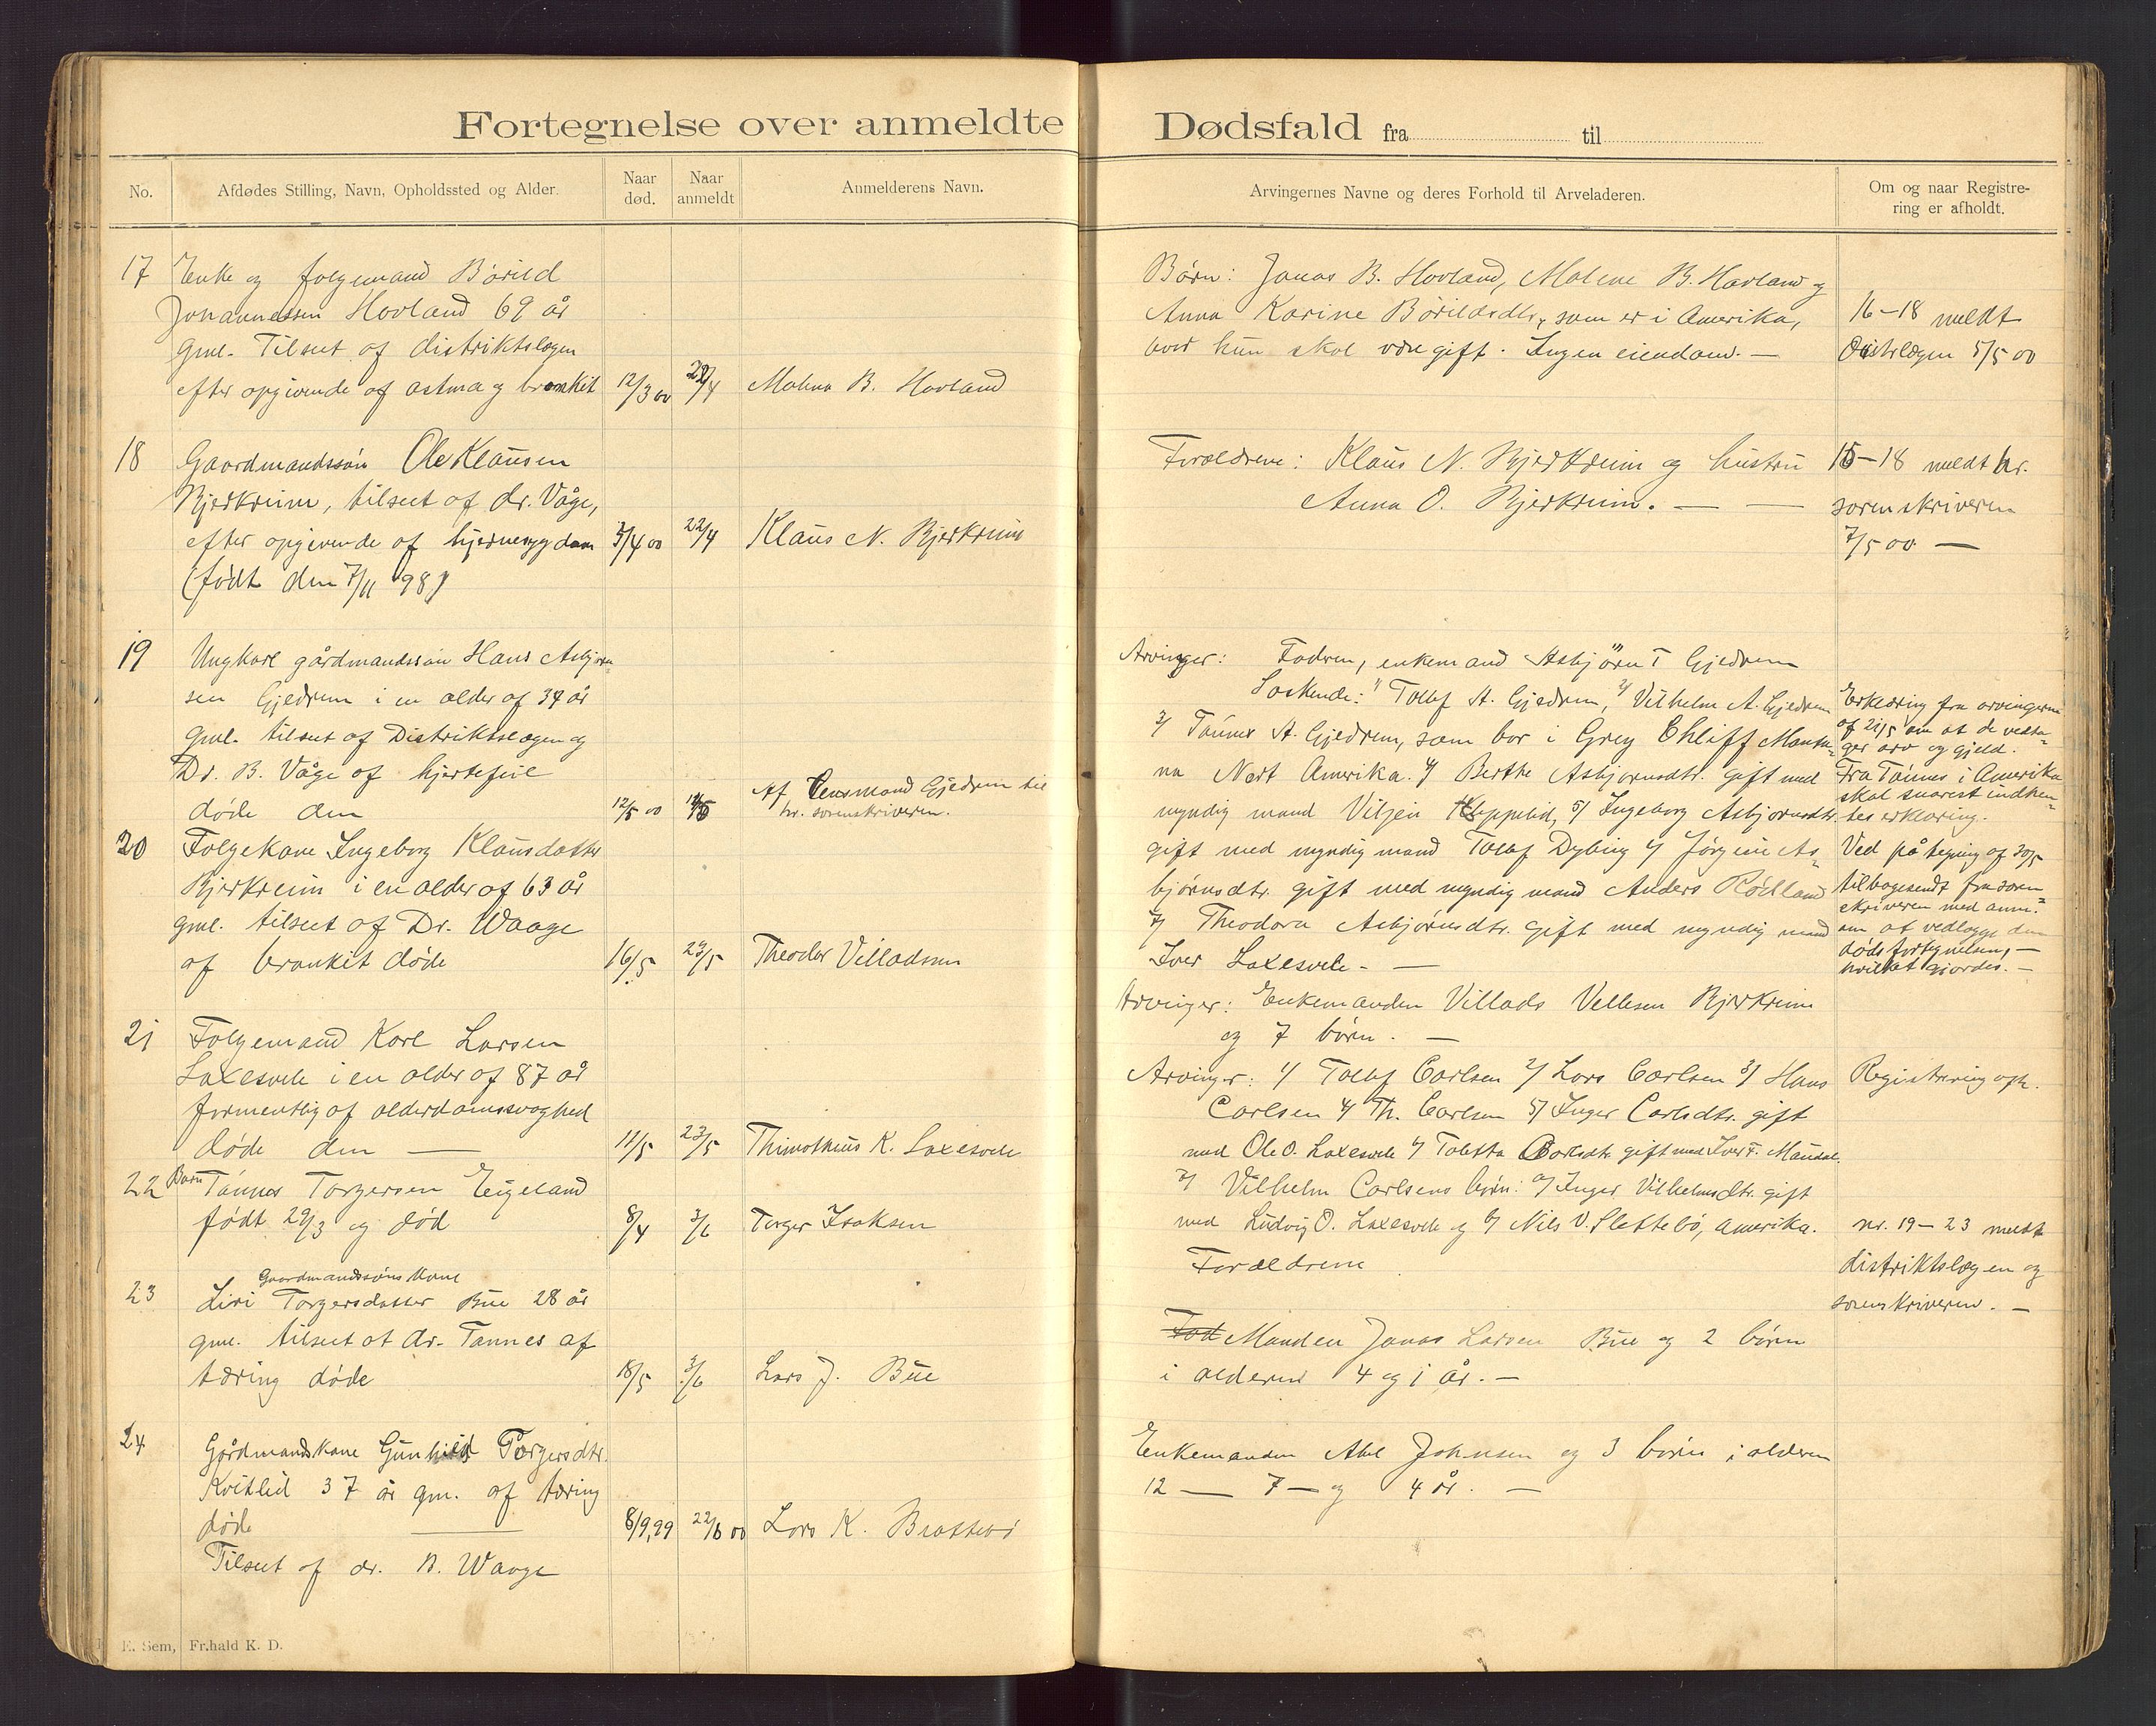 Fortegnelse over anmeldte Dødsfald fra til
No.
Afdødes Stilling, Navn, Opholdssted og Alder.
Naar død.
Naar anmeldt
Anmelderens Navn.
Arvingernes Navne og deres Forhold til Arveladeren.
Om og naar Registre-
ring er afholdt.
17 Enke og folgemand Børild
Johannessen Hovland 69 år
gml. Tilseet af distriktslægen
efter opgivende af astma og bronkit 12/3 00 22/4 Malene B. Hovland
Børn: Jonas B. Hovland, Malene B. Hovland og
Anna Karine Børildsdtr, som er i Amerika,
hvor hun skal være gift. Ingen eiendom. —
16–18 meldt
Distrlægen 5/5 00
18 Gaardmandssøn Ole Klausen
Bjerkreim, tilseet af dr. Våge,
efter opgivende af hjernesygdom 3/4 00 22/4 Klaus N. Bjerkreim
(født den 7/11 98)
Forældrene: Klaus N. Bjerkreim og hustru
Anna O. Bjerkreim. — —
15–18 meldt hr.
sorenskriveren
7/5 00 —
19 Ungkarl gårdmandssøn Hans Asbjørn-
sen Gjedrem i en alder af 34 år
gml. tilseet af Distriktslægen og
Dr. B. Våge af hjertefeil
døde den 12/5 00 Af Lensmand Gjedrem til
hr. sorenskriveren.
Arvinger: Fadren, enkemand Asbjørn T Gjedrem
Søskende: 1/ Tollef A. Gjedrem, 2/ Vilhelm A. Gjedrem
3/ Tønnes A. Gjedrem, som bor i Grey Chliff Monta-
na Nort Amerika. 4/ Berthe Asbjørnsdtr. gift med
myndig mand Viljen Kleppelid, 5/ Ingeborg Asbjørnsdtr.
gift med myndig mand Tollef Dybing 6/ Jørgine As-
bjørnsdtr. gift med myndig mand Anders Rødland
7/ Theodora Asbjørnsdtr. gift med myndig mand
Iver Laxesvele. —
Erklæring fra arvingerne
af 21/5 om at de vedta-
ger arv og gjeld.
Fra Tønnes i Amerika
skal snarest indhen-
tes erklæring.
Ved påtegning af 30/5
tilbagesendt fra soren-
skriveren med anm.
om at vedlægge den
dødsfortegnelsen, —
hvilket gjordes. —
20 Folgekone Ingeborg Klausdatter
Bjerkreim i en alder af 63 år
gml. tilseet af Dr. Waage
af bronkit døde 16/5 23/5 Theodor Villadsen
Arvinger: Enkemanden Villads Vellesen Bjerkreim
og 7 børn. —
21 Folgemand Karl Larsen
Laxesvele i en alder af 87 år
formentlig af alderdomssvaghed
døde den — 11/5 23/5 Thimotheus K. Laxesvele
Arvinger: 1/ Tollef Carlsen 2/ Lars Carlsen 3/ Hans
Carlsen 4/ Th. Carlsen 5/ Inger Carlsdtr. gift
med Ole O. Laxesvele 6/ Toletta Carlsdtr gift med Iver T. Maudal.
7/ Vilhelm Carlsens børn: a/ Inger Vilhelmsdtr. gift
med Ludvig O. Laxesvele og b/ Nils V. Slettebø, Amerika.
Registrering oph.
22 Barn Tønnes Torgersen Eigeland
født 29/3 og død 8/4 3/6 Torger Isaksen
Forældrene
nr. 19–23 meldt
distriktslægen og
sorenskriveren. —
23 Gaardmandssøns Kone
Siri Torgersdatter Bue 28 år
gml. tilseet af dr. Tannes af
tæring døde 18/5 3/6 Lars J. Bue
Fad Manden Jonas Larsen Bue og 2 børn
i alderen 4 og 1 år. —
24 Gårdmandskone Gunhild Torgersdtr.
Kvitlid 37 år gm. af tæring
døde — 8/9,99 22/6 00 Lars K. Brattebø
Tilseet af dr. B. Waage
Enkemanden Abel Johnsen og 3 børn i alderen
12 — 7 — og 4 år. —
E. Sem, Fr.hald K. D.